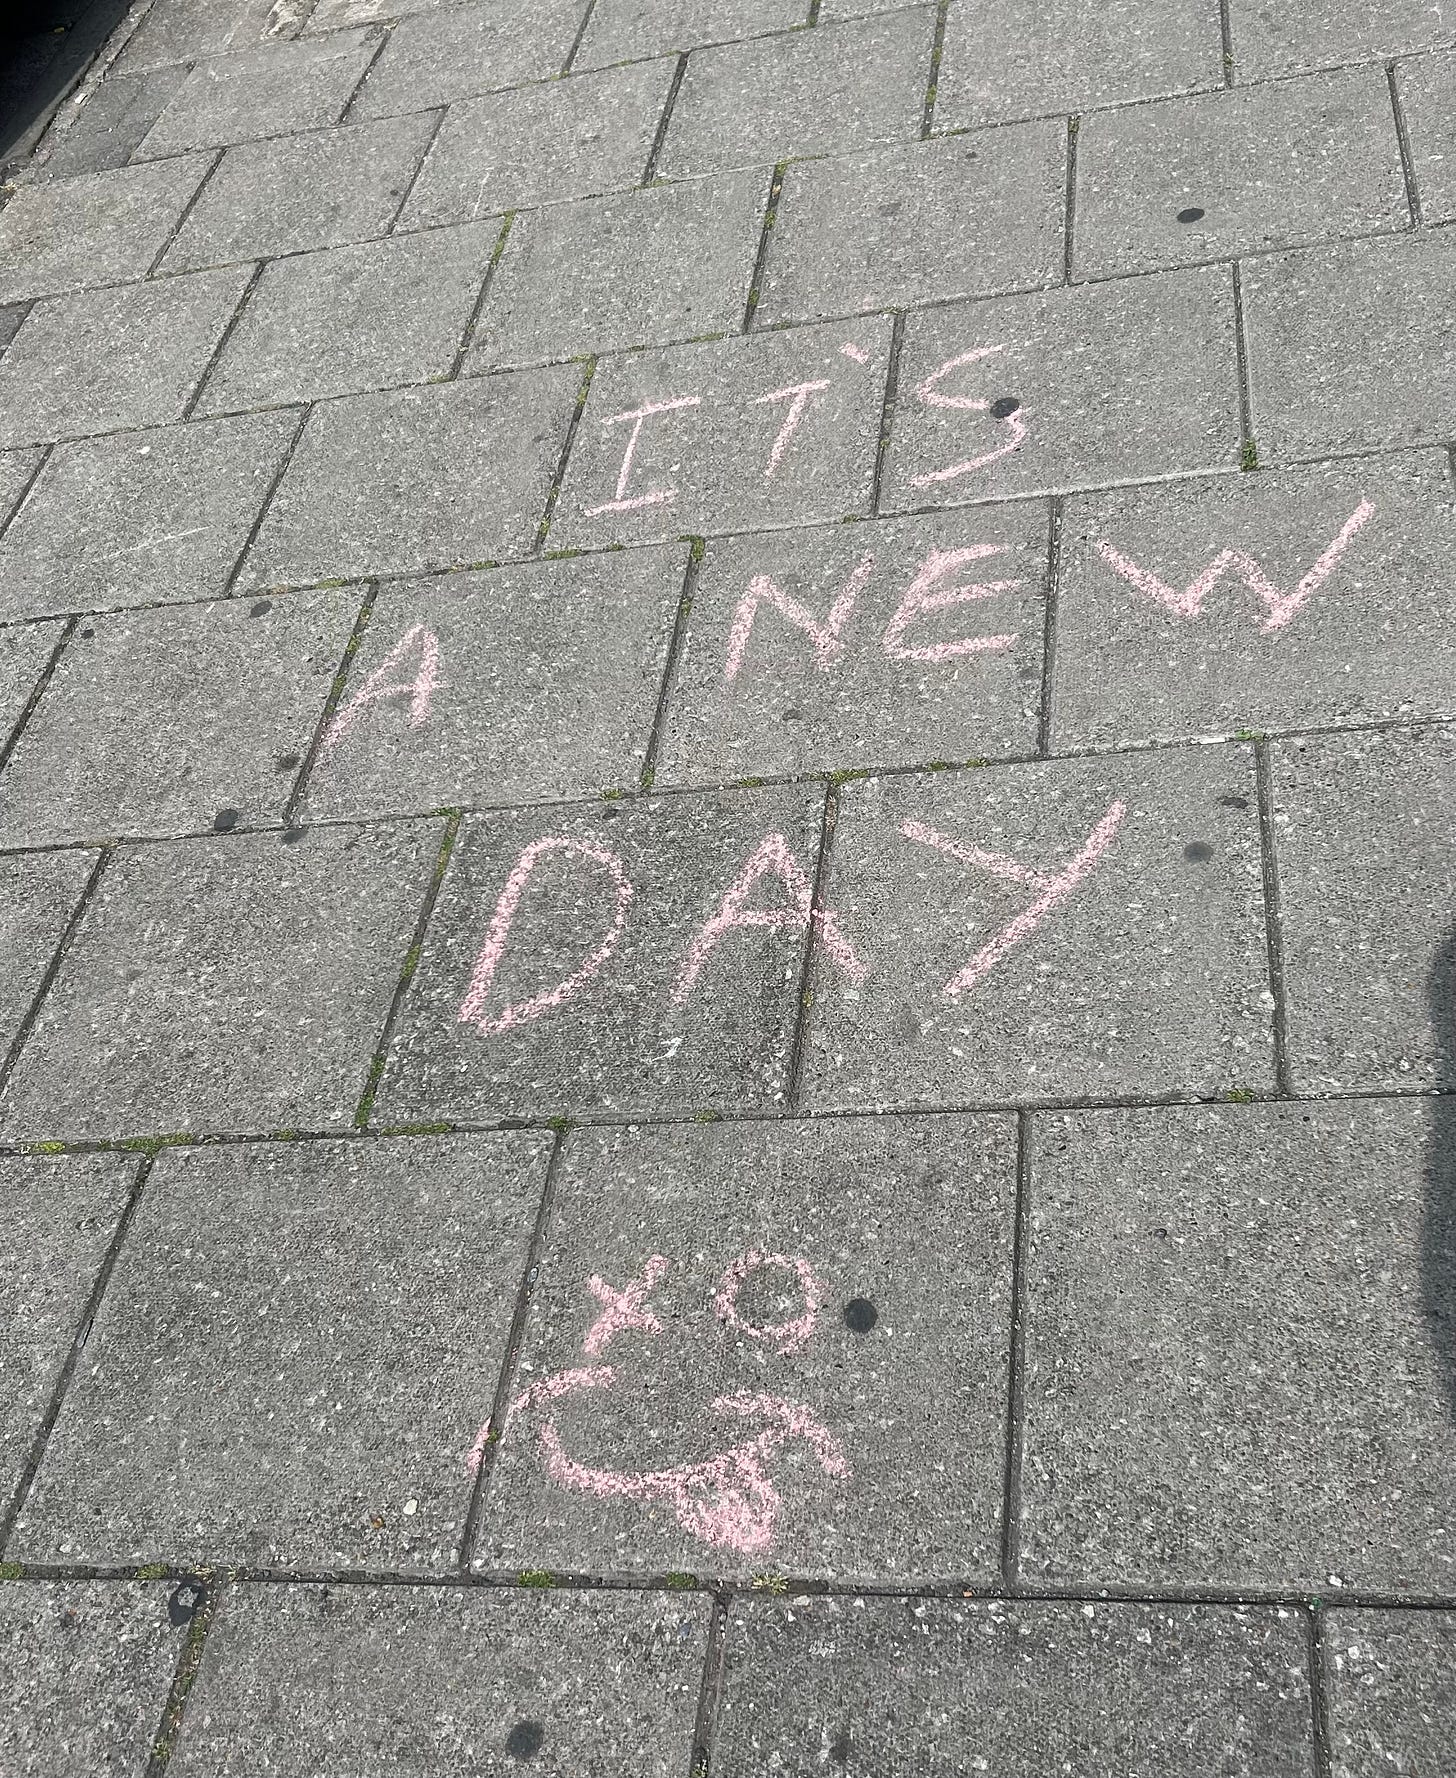 IT'S
A NEW
DAY